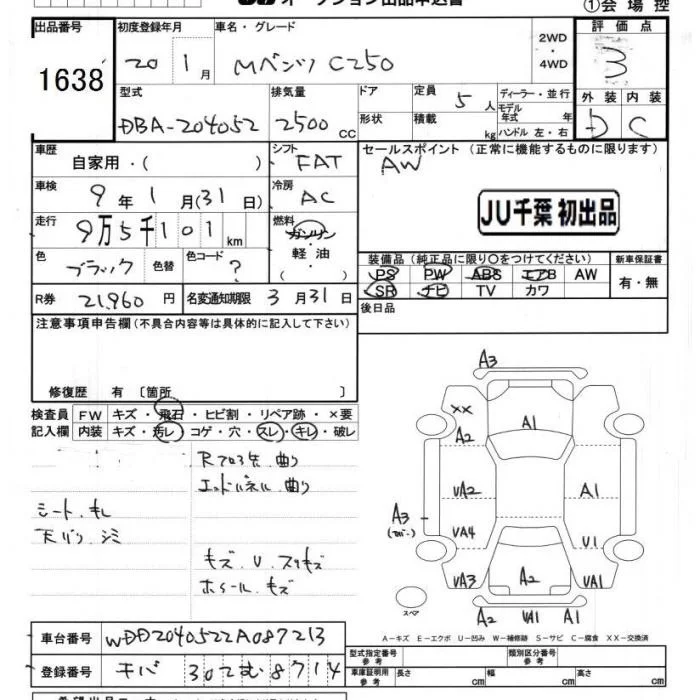 オークション出品申込書
①会場控
出品番号 初度登録年月 車名・グレード 評価点
1638 20 1月 Mベンツ C250 2WD ・ 4WD 3
型式 排気量 ドア 定員 ディーラー・並行 外装 内装
DBA-204052 2500 CC 5人 モデル年式 年 D C
形状 積載 kg ハンドル 左・右
車歴 シフト セールスポイント (正常に機能するものに限ります)
自家用・( ) FAT AW
車検 9年 1月(31日) 冷房 AC
JU千葉 初出品
走行 9万5千101 km 燃料 ガソリン・軽油・( )
色 ブラック 色替 色コード ?
装備品 (純正品に限り〇をつけてください) 新車保証書
PS PW ABS エアB AW 有・無
SR ナビ TV カワ
R券 21,960円 名変通知期限 3月31日
後日品
注意事項申告欄 (不具合内容等は具体的に記入して下さい)
修復歴 有 〔箇所 〕
検査員 FW キズ・飛石・ヒビ割・リペア跡・×要
記入欄 内装 キズ・汚レ・コゲ・穴・スレ・キレ・破レ
Rフロア先 曲り
エンドパネル 曲り
シート、キレ
天バリ、シミ
キズ、U、スリキズ
ホイール、キズ
A3
XX
A2
A1
UA2
A1
A3
UA4
U1
UA3
A2
UA1
スペア
A2 UA1 A1
A-キズ E-エクボ U-凹み W-補修跡 S-サビ C-腐食 XX-交換済
車台番号 WDD2040522A087213
型式指定番号 参考 類別区分番号 参考
登録番号 チバ 302 む 8714
車庫証明用 参考 長さ cm 幅 cm 高さ cm